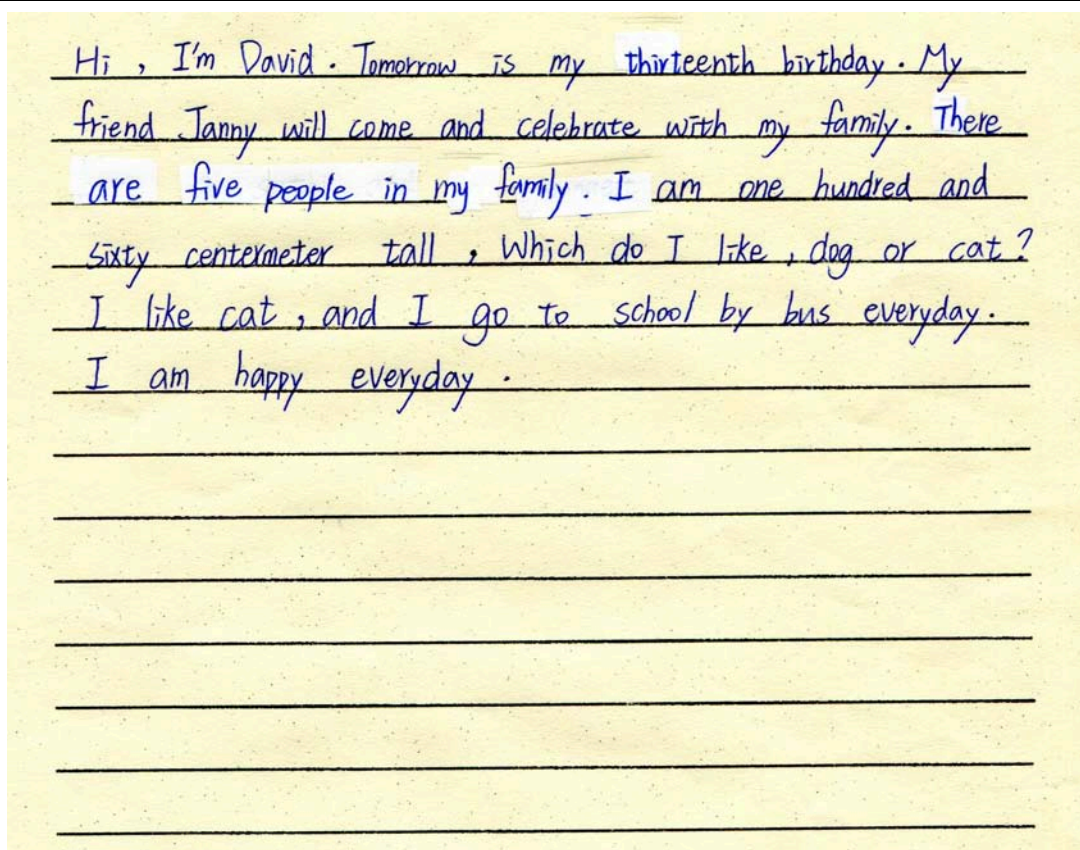 Hi , I'm David . Tomorrow is my thirteenth birthday . My
friend Janny will come and celebrate with my family . There
are five people in my family . I am one hundred and
sixty centermeter tall , Which do I like , dog or cat ?
I like cat , and I go to school by bus everyday .
I am happy everyday .